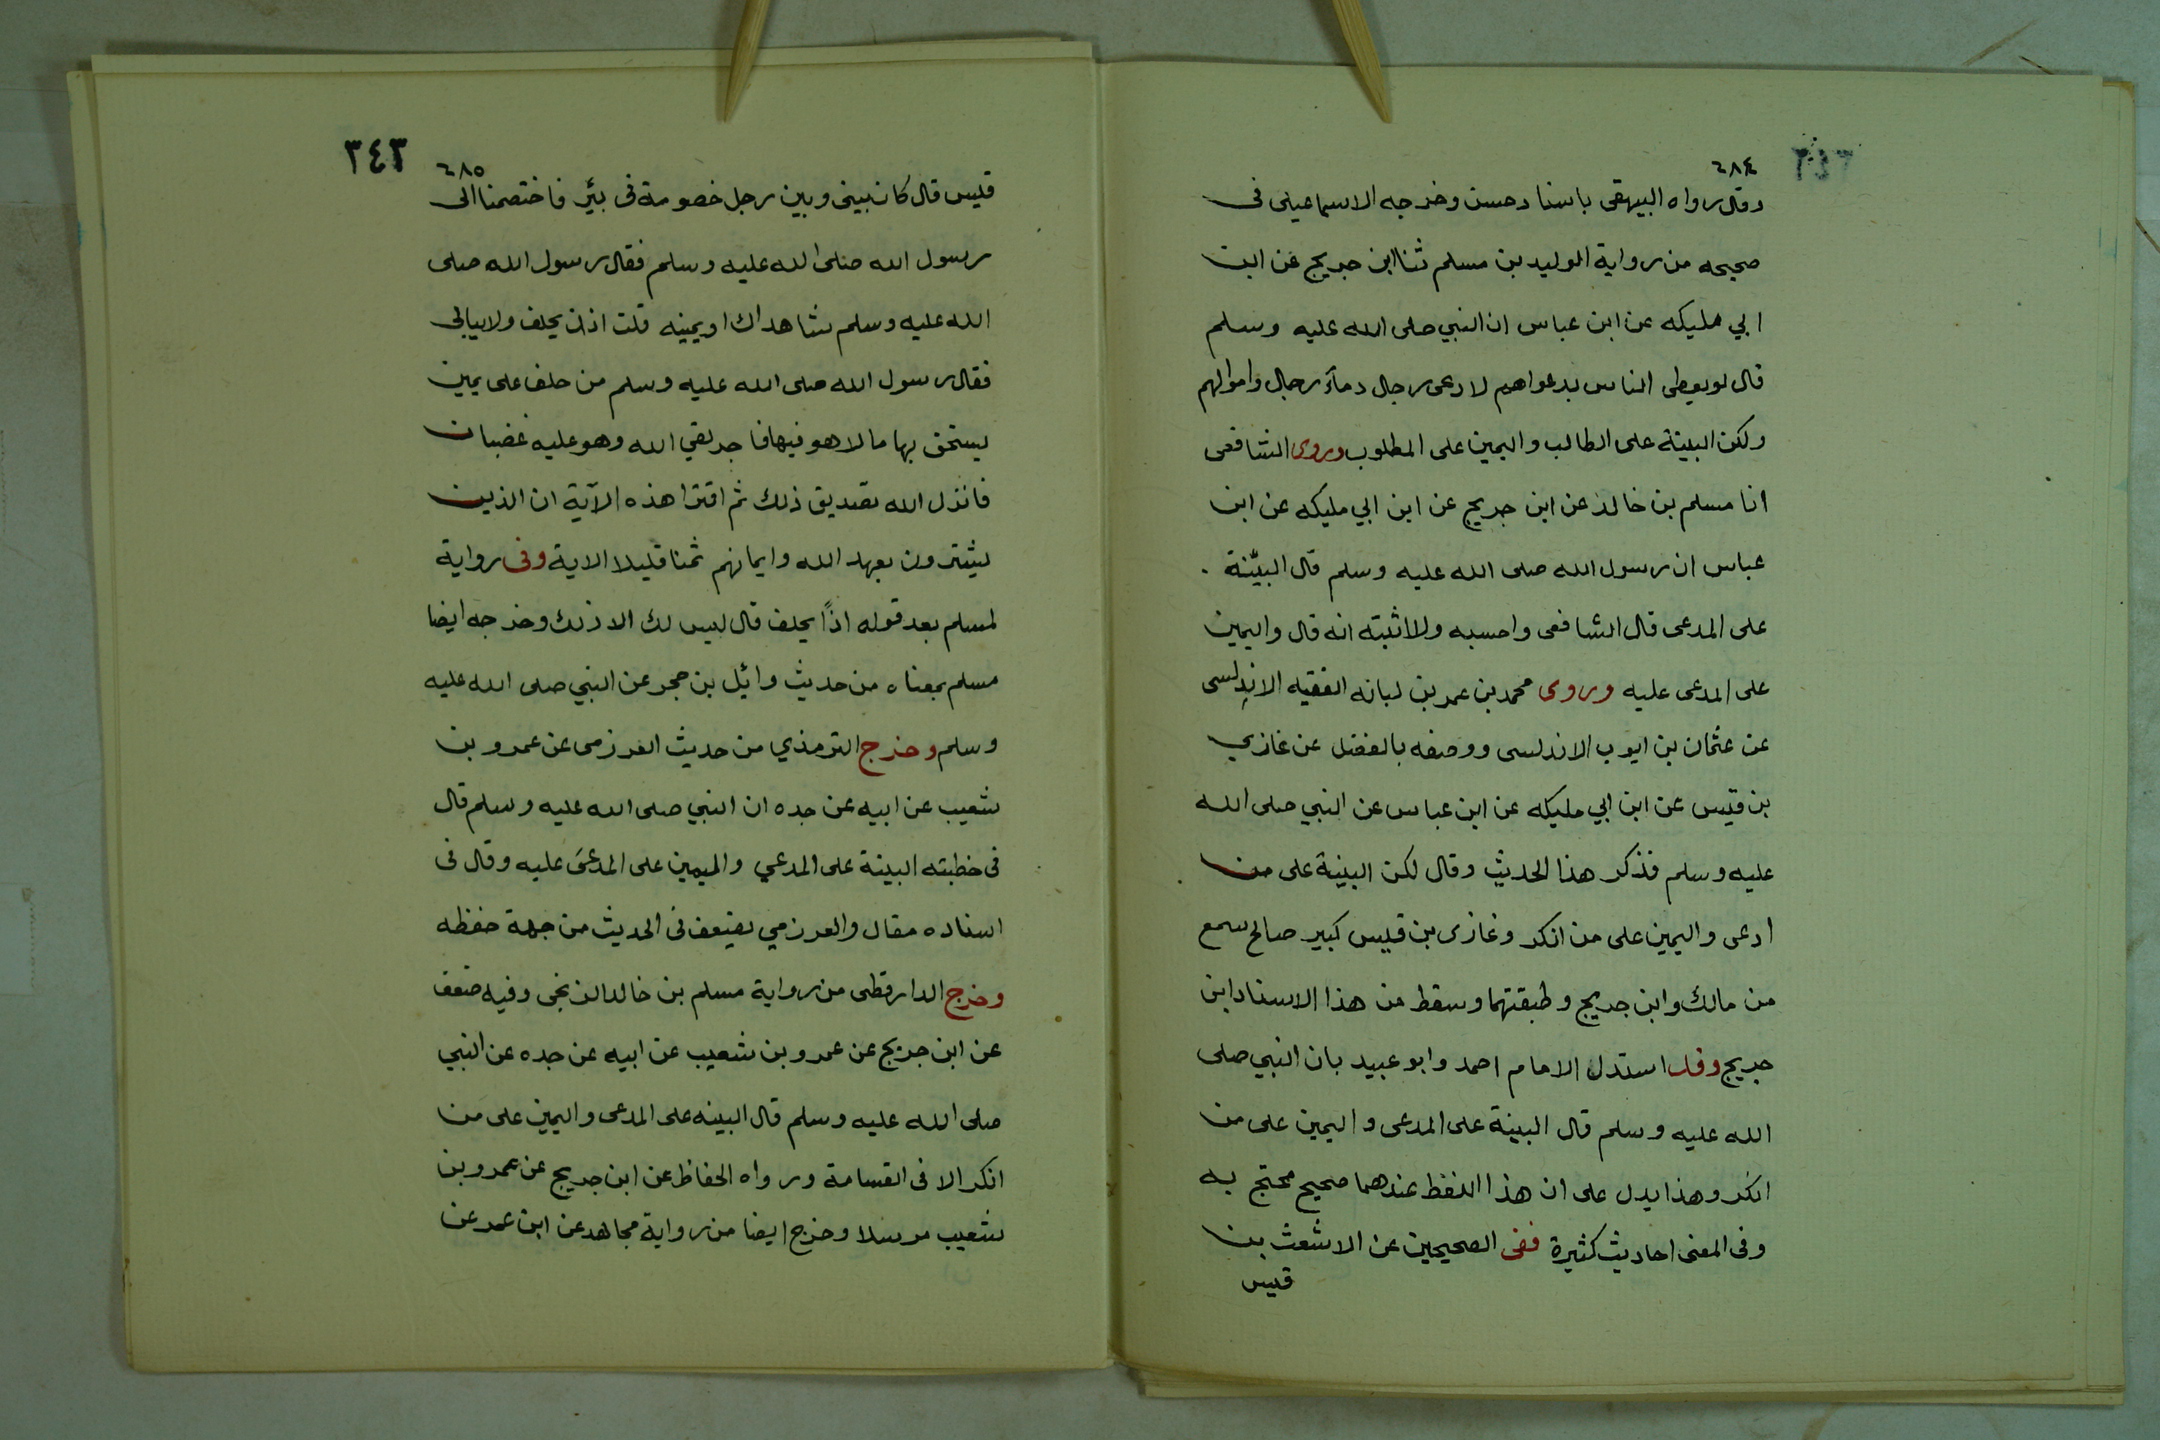 ٦٨٤
وقال رواه البيهقى باسناد حسن وخرجه الاسماعيلى فى
صحيحه من رواية الوليد بن مسلم ثنا ابن جريج عن ابن
ابي مليكه عن ابن عباس ان النبي صلى الله عليه وسلم
قال لو يعطى الناس بدعواهم لادعى رجال دمآء رجال واموالهم
ولكن البينة على الطالب واليمين على المطلوب وروى الشافعى
انا مسلم بن خالد عن ابن جريج عن ابن ابي مليكه عن ابن
عباس ان رسول الله صلى الله عليه وسلم قال البيّنة
على المدعى قال الشافعى واحسبه ولا اثبته انه قال واليمين
على المدعى عليه وروى محمد بن عمر بن لبانه الفقيه الاندلسى
عن عثمان بن ايوب الاندلسى ووصفه بالفضل عن غازي
بن قيس عن ابن ابي مليكه عن ابن عباس عن النبي صلى الله
عليه وسلم فذكر هذا الحديث وقال لكن البينة على من
ادعى واليمين على من انكر وغازى بن قيس كبير صالح سمع
من مالك وابن جريج وطبقتهما وسقط من هذا الاسناد ابن
جريج وقد استدل الامام احمد وابو عبيد بان النبي صلى
الله عليه وسلم قال البينة على المدعى واليمين على من
انكر وهذا يدل على ان هذا اللفظ عندهما صحيح محتج به
وفى المعنى احاديث كثيرة ففى الصحيحين عن الاشعث بن
قيس
٣٤٣
٦٨٥
قيس قال كان بينى وبين رجل خصومة فى بئر فاختصمنا الى
رسول الله صلى الله عليه وسلم فقال رسول الله صلى
الله عليه وسلم شاهداك او يمينه قلت اذن يحلف ولا يبالى
فقال رسول الله صلى الله عليه وسلم من حلف على يمين
يستحق بها مالا هو فيها فاجر لقي الله وهو عليه غضبان
فانزل الله تصديق ذلك ثم اقترا هذه الآية ان الذين
يشترون بعهد الله وايمانهم ثمنا قليلا الاية وفى رواية
لمسلم بعد قوله اذًا يحلف قال ليس لك الا ذلك وخرجه ايضا
مسلم بمعناه من حديث وائل بن حجر عن النبي صلى الله عليه
وسلم وخرج الترمذي من حديث العرزمى عن عمرو بن
شعيب عن ابيه عن جده ان النبي صلى الله عليه وسلم قال
فى خطبته البينة على المدعي واليمين على المدعى عليه وقال فى
اسناده مقال والعرزمي يضعف فى الحديث من جهة حفظه
وخرج الدارقطى من رواية مسلم بن خالد الزنجى وفيه ضعف
عن ابن جريج عن عمرو بن شعيب عن ابيه عن جده عن النبي
صلى الله عليه وسلم قال البينه على المدعى واليمين على من
انكر الا فى القسامة ورواه الحفاظ عن ابن جريج عن عمرو بن
شعيب مرسلا وخرج ايضا من رواية مجاهد عن ابن عمر عن